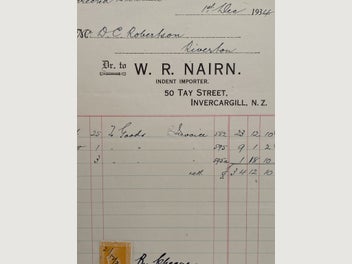 1st Dec 1934
D. C. Robertson
Riverton
Dr. to W. R. NAIRN.
INDENT IMPORTER.
50 TAY STREET,
INVERCARGILL, N. Z.
25 To Goods Invoice 582 23 12 10
1 " " 595 9 1 2
3 " " 595a 1 18 10
£ 34 12 10